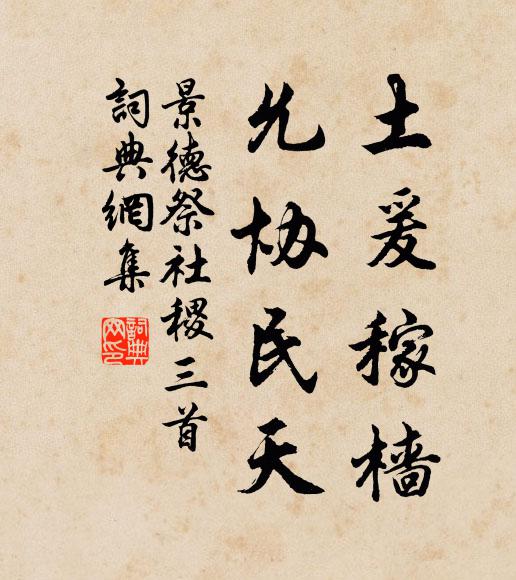 土爰稼檣
允協民天
景德祭社稷三首
詞典網集
詞典網印